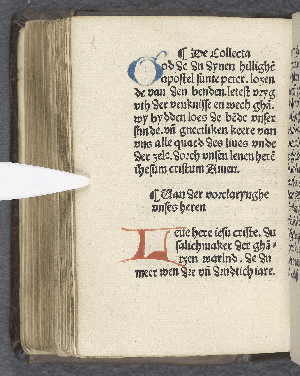 ¶ De Collecta
God de du dynen hillighē
apostel sunte peter. losen
de van den benden. letest vryg
vth der venknisse en wech ghā.
wy bydden loes de bēde vnser
sunde. vñ gnetliken keere van
vns alle quaed des liues vnde
der zele. dorch vnsen heren
ihesum cristum Amen.
¶ Van der vorclarynghe
vnses heren
Leue here iesu criste. du
salichmaker der ghā-
tzen warlnd. de du
meer wen dre vñ druttich iare.